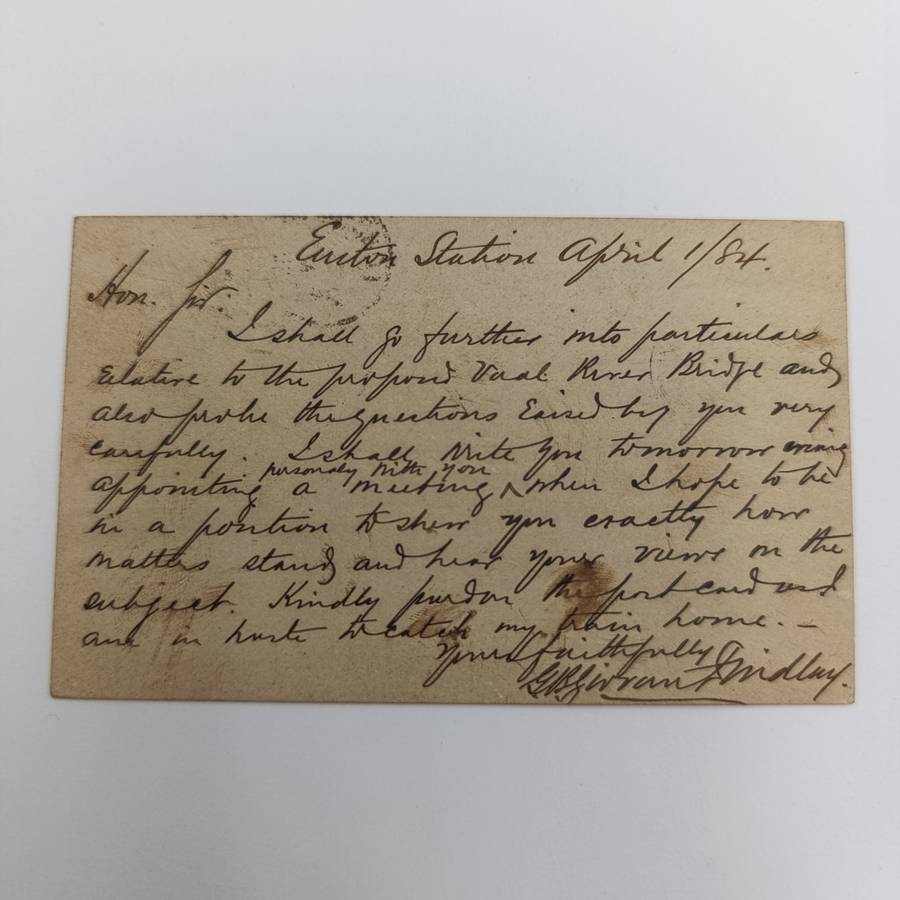 Euston Station April 1/84.
Hon. Sir.
I shall go further into particulars
relative to the proposed Vaal River Bridge and
also probe the questions raised by you very
carefully. I shall write you tomorrow evening
personally with you
appointing a meeting ^ when I hope to be
in a position to shew you exactly how
matters stand and hear your views on the
subject. Kindly pardon the post card as I
am in haste to catch my train home. —
Yours faithfully
G.B. Findlay.